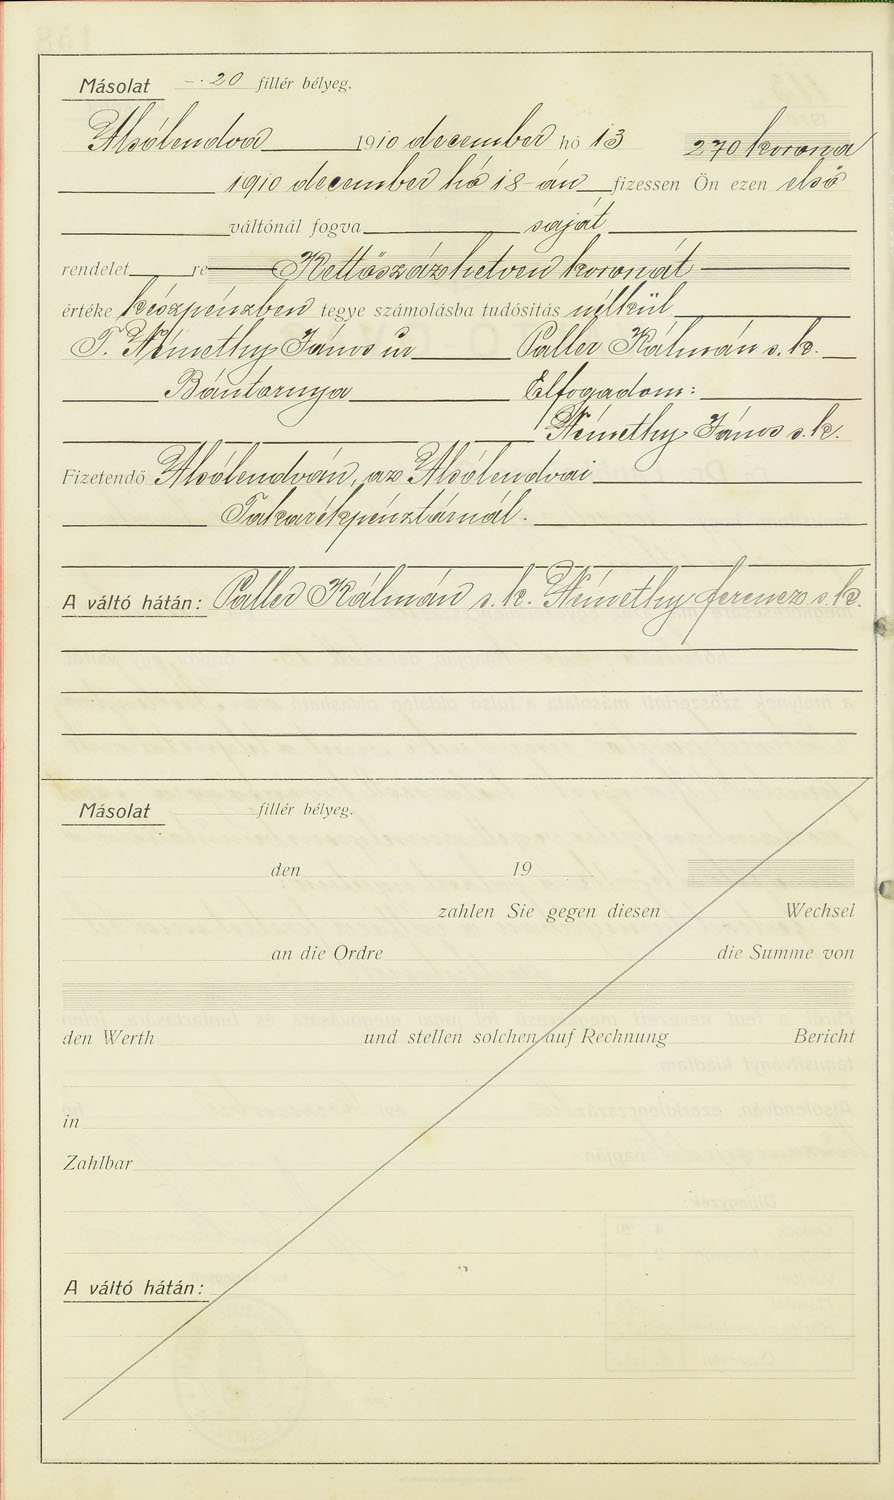 Másolat —·20 fillér bélyeg.
Alsólendva 1910 december hó 13 270 korona
1910 december hó 18-án fizessen Ön ezen első
váltónál fogva saját
rendelet re Kettőszázhetven koronát
értéke készpénzben tegye számolásba tudósítás nélkül
T. Némethy János úr Paller Kálmán s. k.
Bántornya Elfogadom:
Némethy János s. k.
Fizetendő Alsólendván, az Alsólendvai
Takarékpénztárnál.
A váltó hátán: Paller Kálmán s. k. Némethy ferencz s. k.
Másolat fillér bélyeg.
den 19
zahlen Sie gegen diesen Wechsel
an die Ordre die Summe von
den Werth und stellen solchen auf Rechnung Bericht
in
Zahlbar
A váltó hátán: